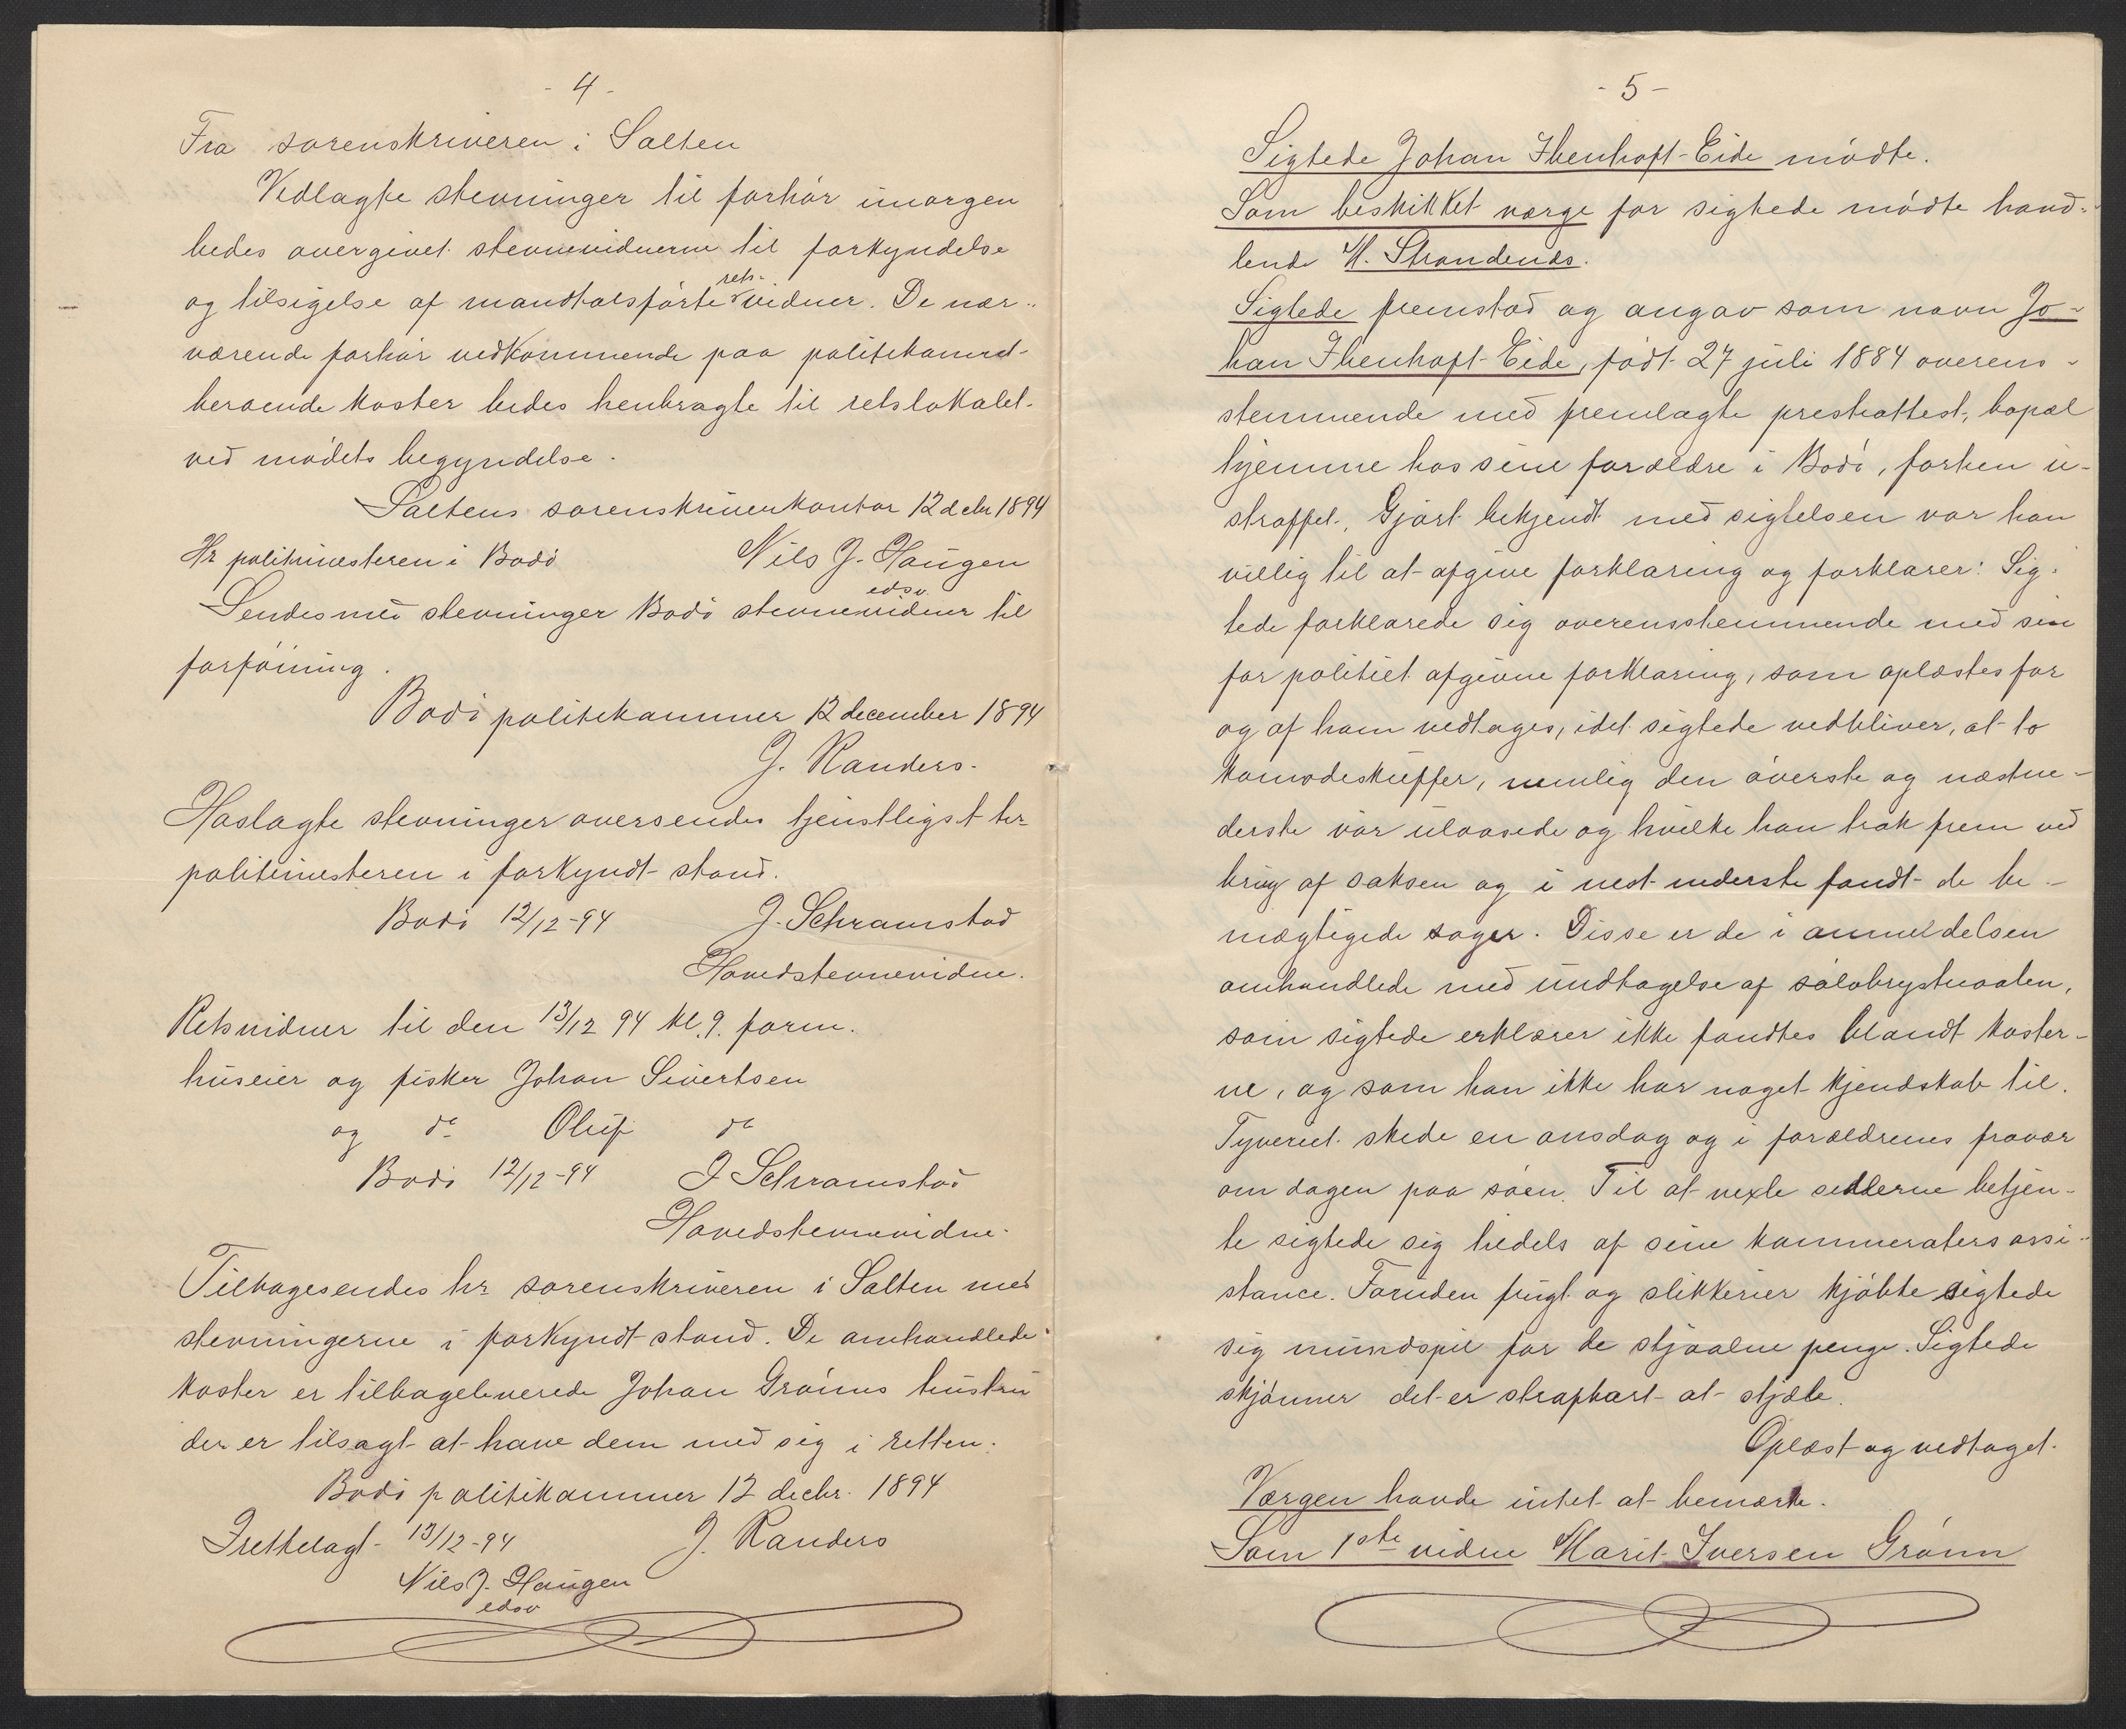 - 4 -
Fra sorenskriveren i Salten
Vedlagte stevninger til forhør imorgen
bedes overgivet stevnevidnerne til forkyndelse
og tilsigelse af mandtalsførte rets-vidner. De nær-
værende forhør vedkommende paa politikamret
beroende koster bedes henbragte til retslokalet
ved mødets begyndelse.
Saltens sorenskriverkontor 12 debr 1894
Hr politimesteren i Bodø Nils J. Haugen
edsv.
Sendes med stevninger Bodø stevnevidner til
forføining.
Bodø politikammer 12 december 1894
J. Randers.
Haslagte stevninger oversendes tjenstligst hr
politimesteren i forkyndt stand.
Bodø 12/12-94 J. Schramstad
Hovedstevnevidne.
Retsvidner til den 13/12 94 kl. 9. form.
huseier og fisker Johan Sivertsen
og do Oluf do
Bodø 12/12-94 J Schramstad
Hovedstevnevidne.
Tilbagesendes hr sorenskriveren i Salten med
stevningerne i forkyndt stand. De omhandlede
koster er tilbageleverede Johan Grønns hustru
der er tilsagt at have dem med sig i retten.
Bodø politikammer 12 decbr. 1894
Irettelagt 13/12-94 J. Randers
Nils J. Haugen
edsv
- 5 -
Sigtede Johan Ibenhoft-Eide mødte.
Som beskikket værge for sigtede mødte hand-
lende M. Strandenæs.
Sigtede fremstod og angav som navn Jo-
han Ibenhoft-Eide, født 27 juli 1884 overens-
stemmende med fremlagte prestattest, bopæl
hjemme hos sine forældre i Bodø, forhen u-
straffet. Gjort bekjendt med sigtelsen var han
villig til at afgive forklaring og forklarer: Sig-
tede forklarede sig overensstemmende med sin
for politiet afgivne forklaring, som oplæstes for
og af ham vedtages, idet sigtede vedbliver, at to
komodeskuffer, nemlig den øverste og næstne-
derste var ulaasede og hvilke han trak frem ved
brug af saksen og i nest nederste fandt de be-
mægtigede sager. Disse er de i anmeldelsen
omhandlede med undtagelse af sølvbrystnaalen,
som sigtede erklærer ikke fandtes blandt koster-
ne, og som han ikke har noget kjendskab til.
Tyveriet skede en onsdag og i forældrenes fravær
om dagen paa søen. Til at vexle sedlerne betjen-
te sigtede sig tildels af sine kammeraters assi-
stance. Foruden frugt og slikkerier kjøbte sigtede
sig mundspil for de stjaalne penge. Sigtede
skjønner det er strafbart at stjæle.
Oplæst og vedtaget.
Værgen havde intet at bemærke.
Som 1ste vidne Marit Iversen Grønn